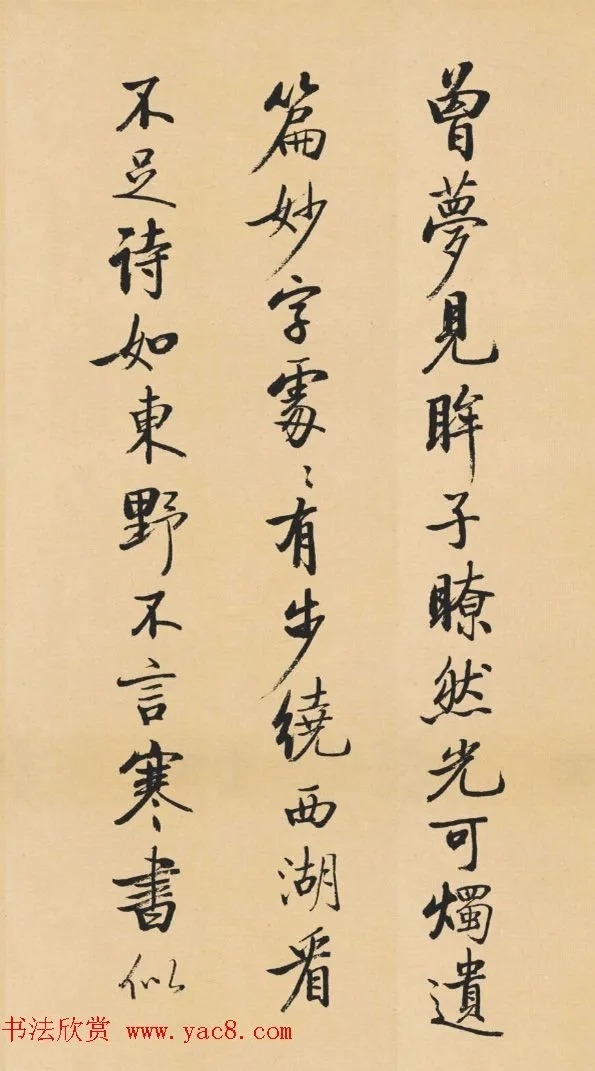 曾夢見眸子瞭然光可燭遺
篇妙字處〻有步繞西湖看
不足诗如東野不言寒書似
书法欣赏 www.yac8.com